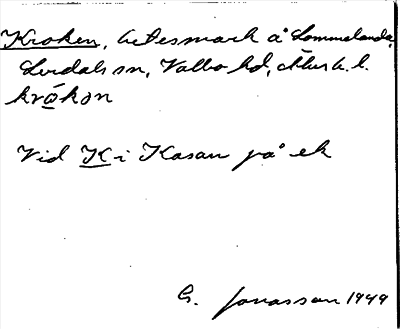 Kroken, betesmark å Lommelanda,
Lerdals sn, Valbo hd, Älvsb. l.
krɔ̀kən
Vid K i Kasan på ek
G. Jonasson 1949